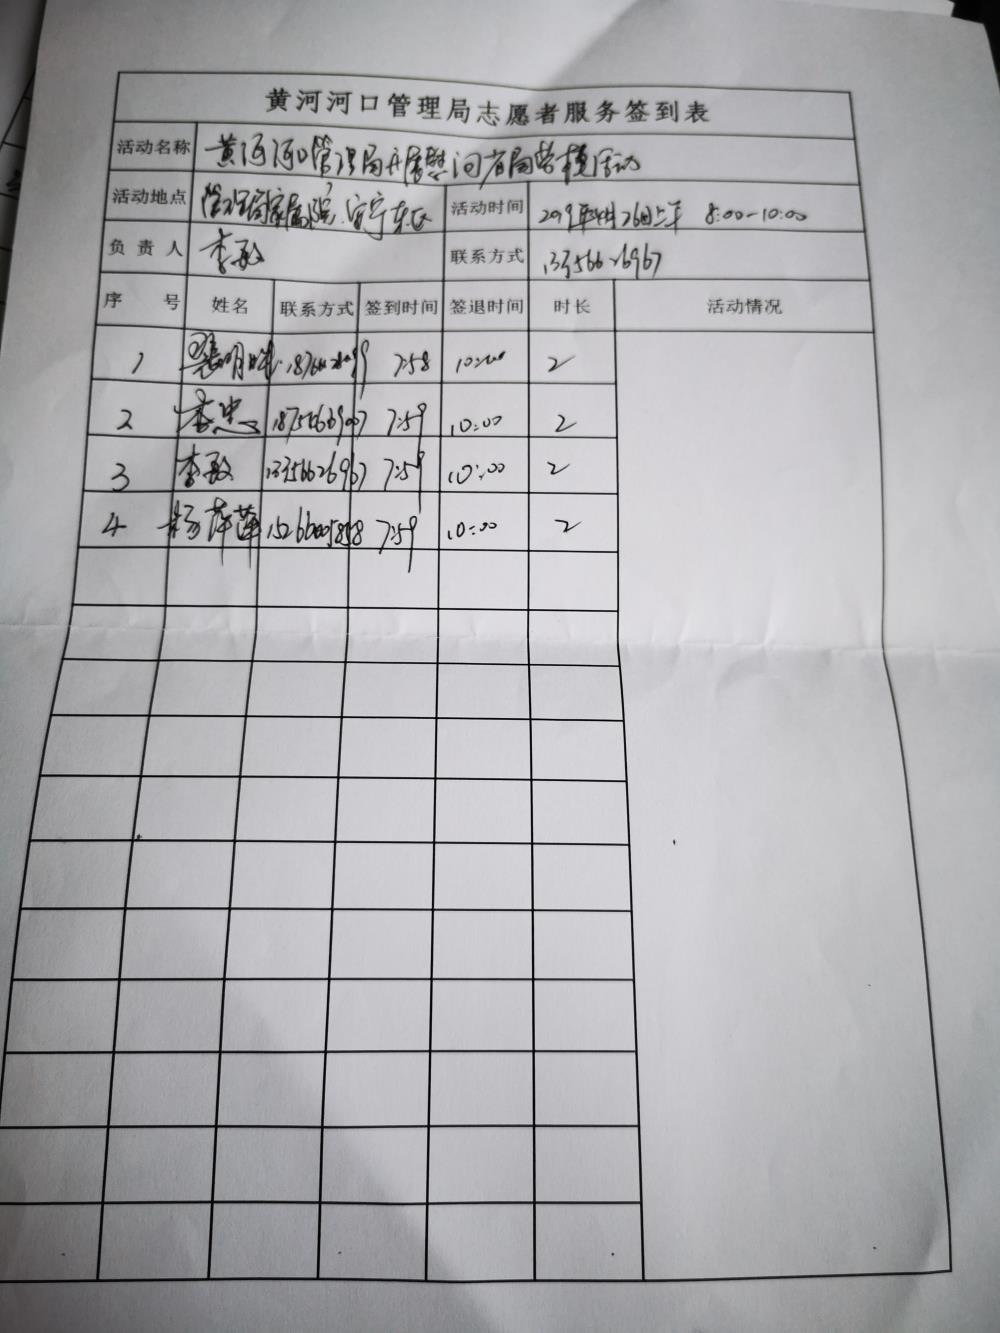 黄河河口管理局志愿者服务签到表
活动名称 黄河河口管理局开展慰问省局劳模活动
活动地点 管理局家属院、安宁东区 活动时间 2019年 26日上午 8:00-10:00
负责人 李敏 联系方式 13356626967
序号 姓名 联系方式 签到时间 签退时间 时长 活动情况
1 7:58 10:00 2
2 李忠 7:59 10:00 2
3 李敏 13356626967 7:59 10:00 2
4 杨萍萍 7:59 10:00 2